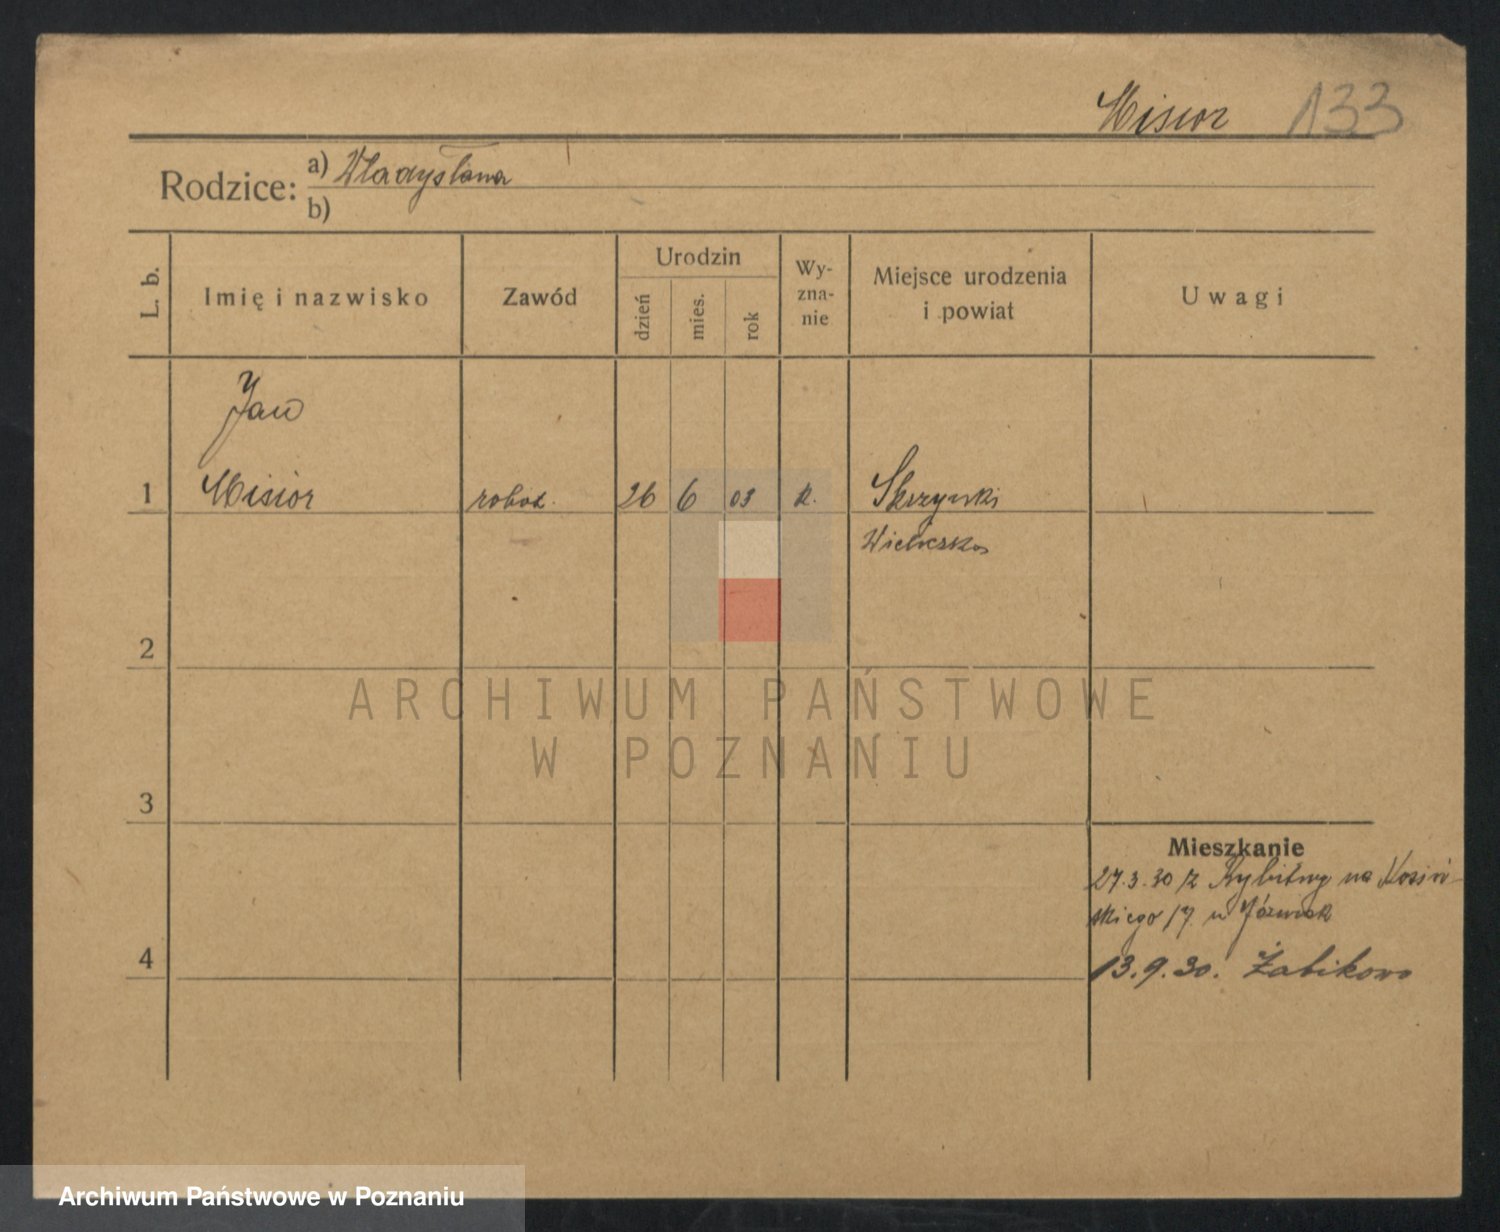 Misior 133
Rodzice: a) Władysława
b)
L. b. Imię i nazwisko Zawód Urodzin dzień mies. rok Wy-zna-nie Miejsce urodzenia i powiat Uwagi
Jan
1 Misior robot. 26 6 03 k. Skrzynki
Wieliczka
2
ARCHIWUM PAŃSTWOWE
W POZNANIU
3
Mieszkanie
27.3.30 z Rybitwy na Kosiń-
skiego 17 u Jóźwiak
4 13.9.30. Żabikowo
Archiwum Państwowe w Poznaniu